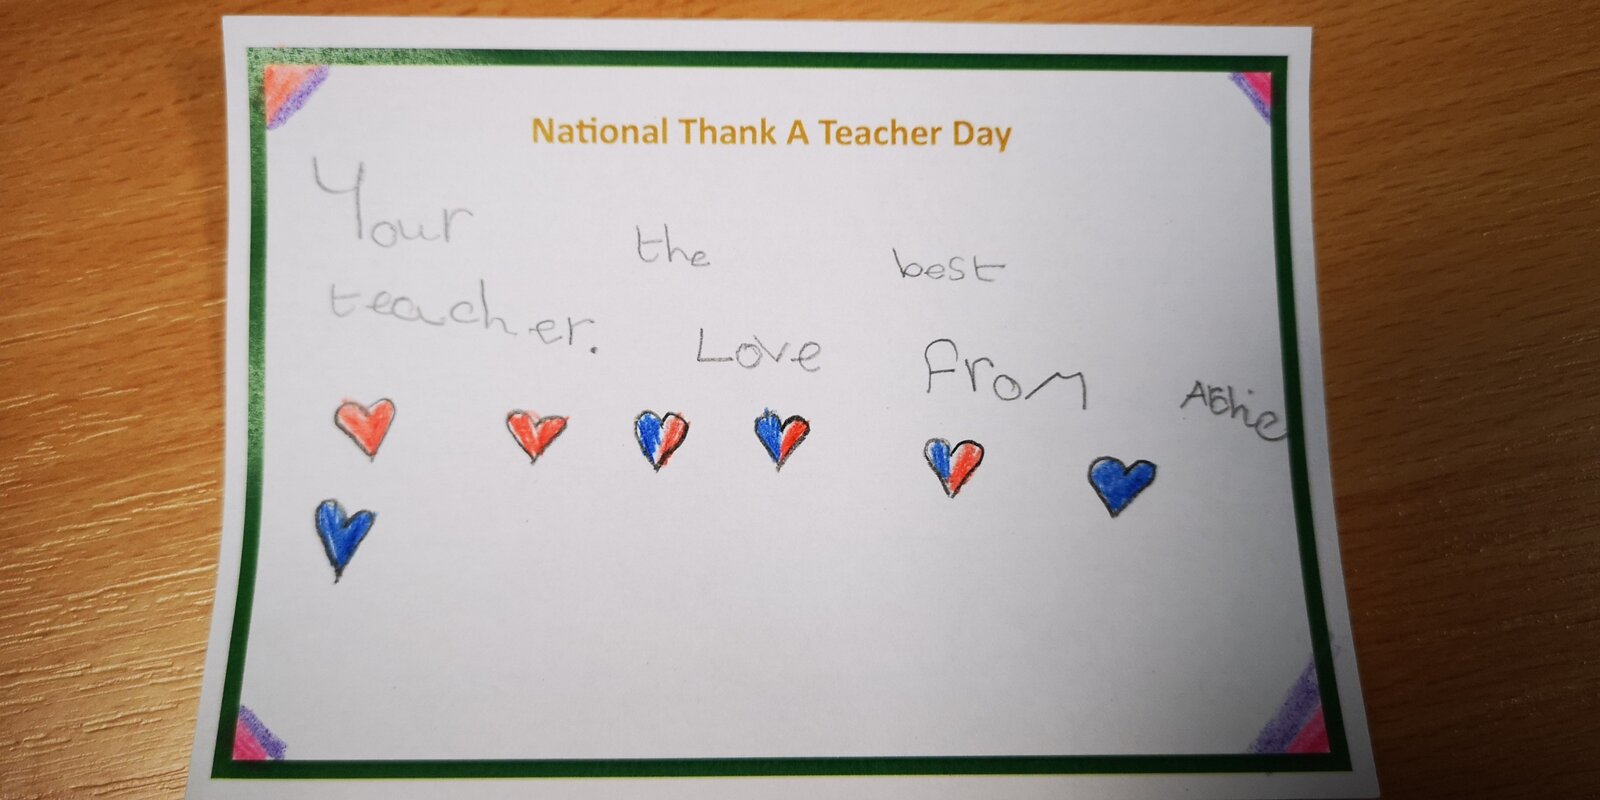 National Thank A Teacher Day
Your the best
teacher. Love from